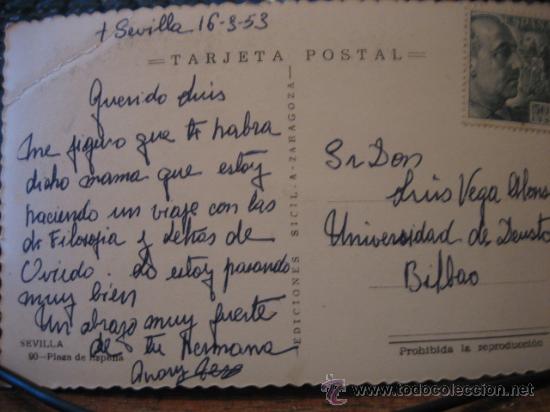 + Sevilla 16-3-53
TARJETA POSTAL
Querido Luis
me figuro que te habra
dicho mama que estoy
haciendo un viaje con las
de Filosofia y Letras de
Oviedo. Lo estoy pasando
muy bien
Un abrazo muy fuerte
de tu Hermana
SEVILLA
90—Plaza de España
EDICIONES SICILIA-ZARAGOZA
ESPAÑA
Sr Don
Luis Vega
Universidad de Deusto
Bilbao
Prohibida la reproducción
todocoleccion.net